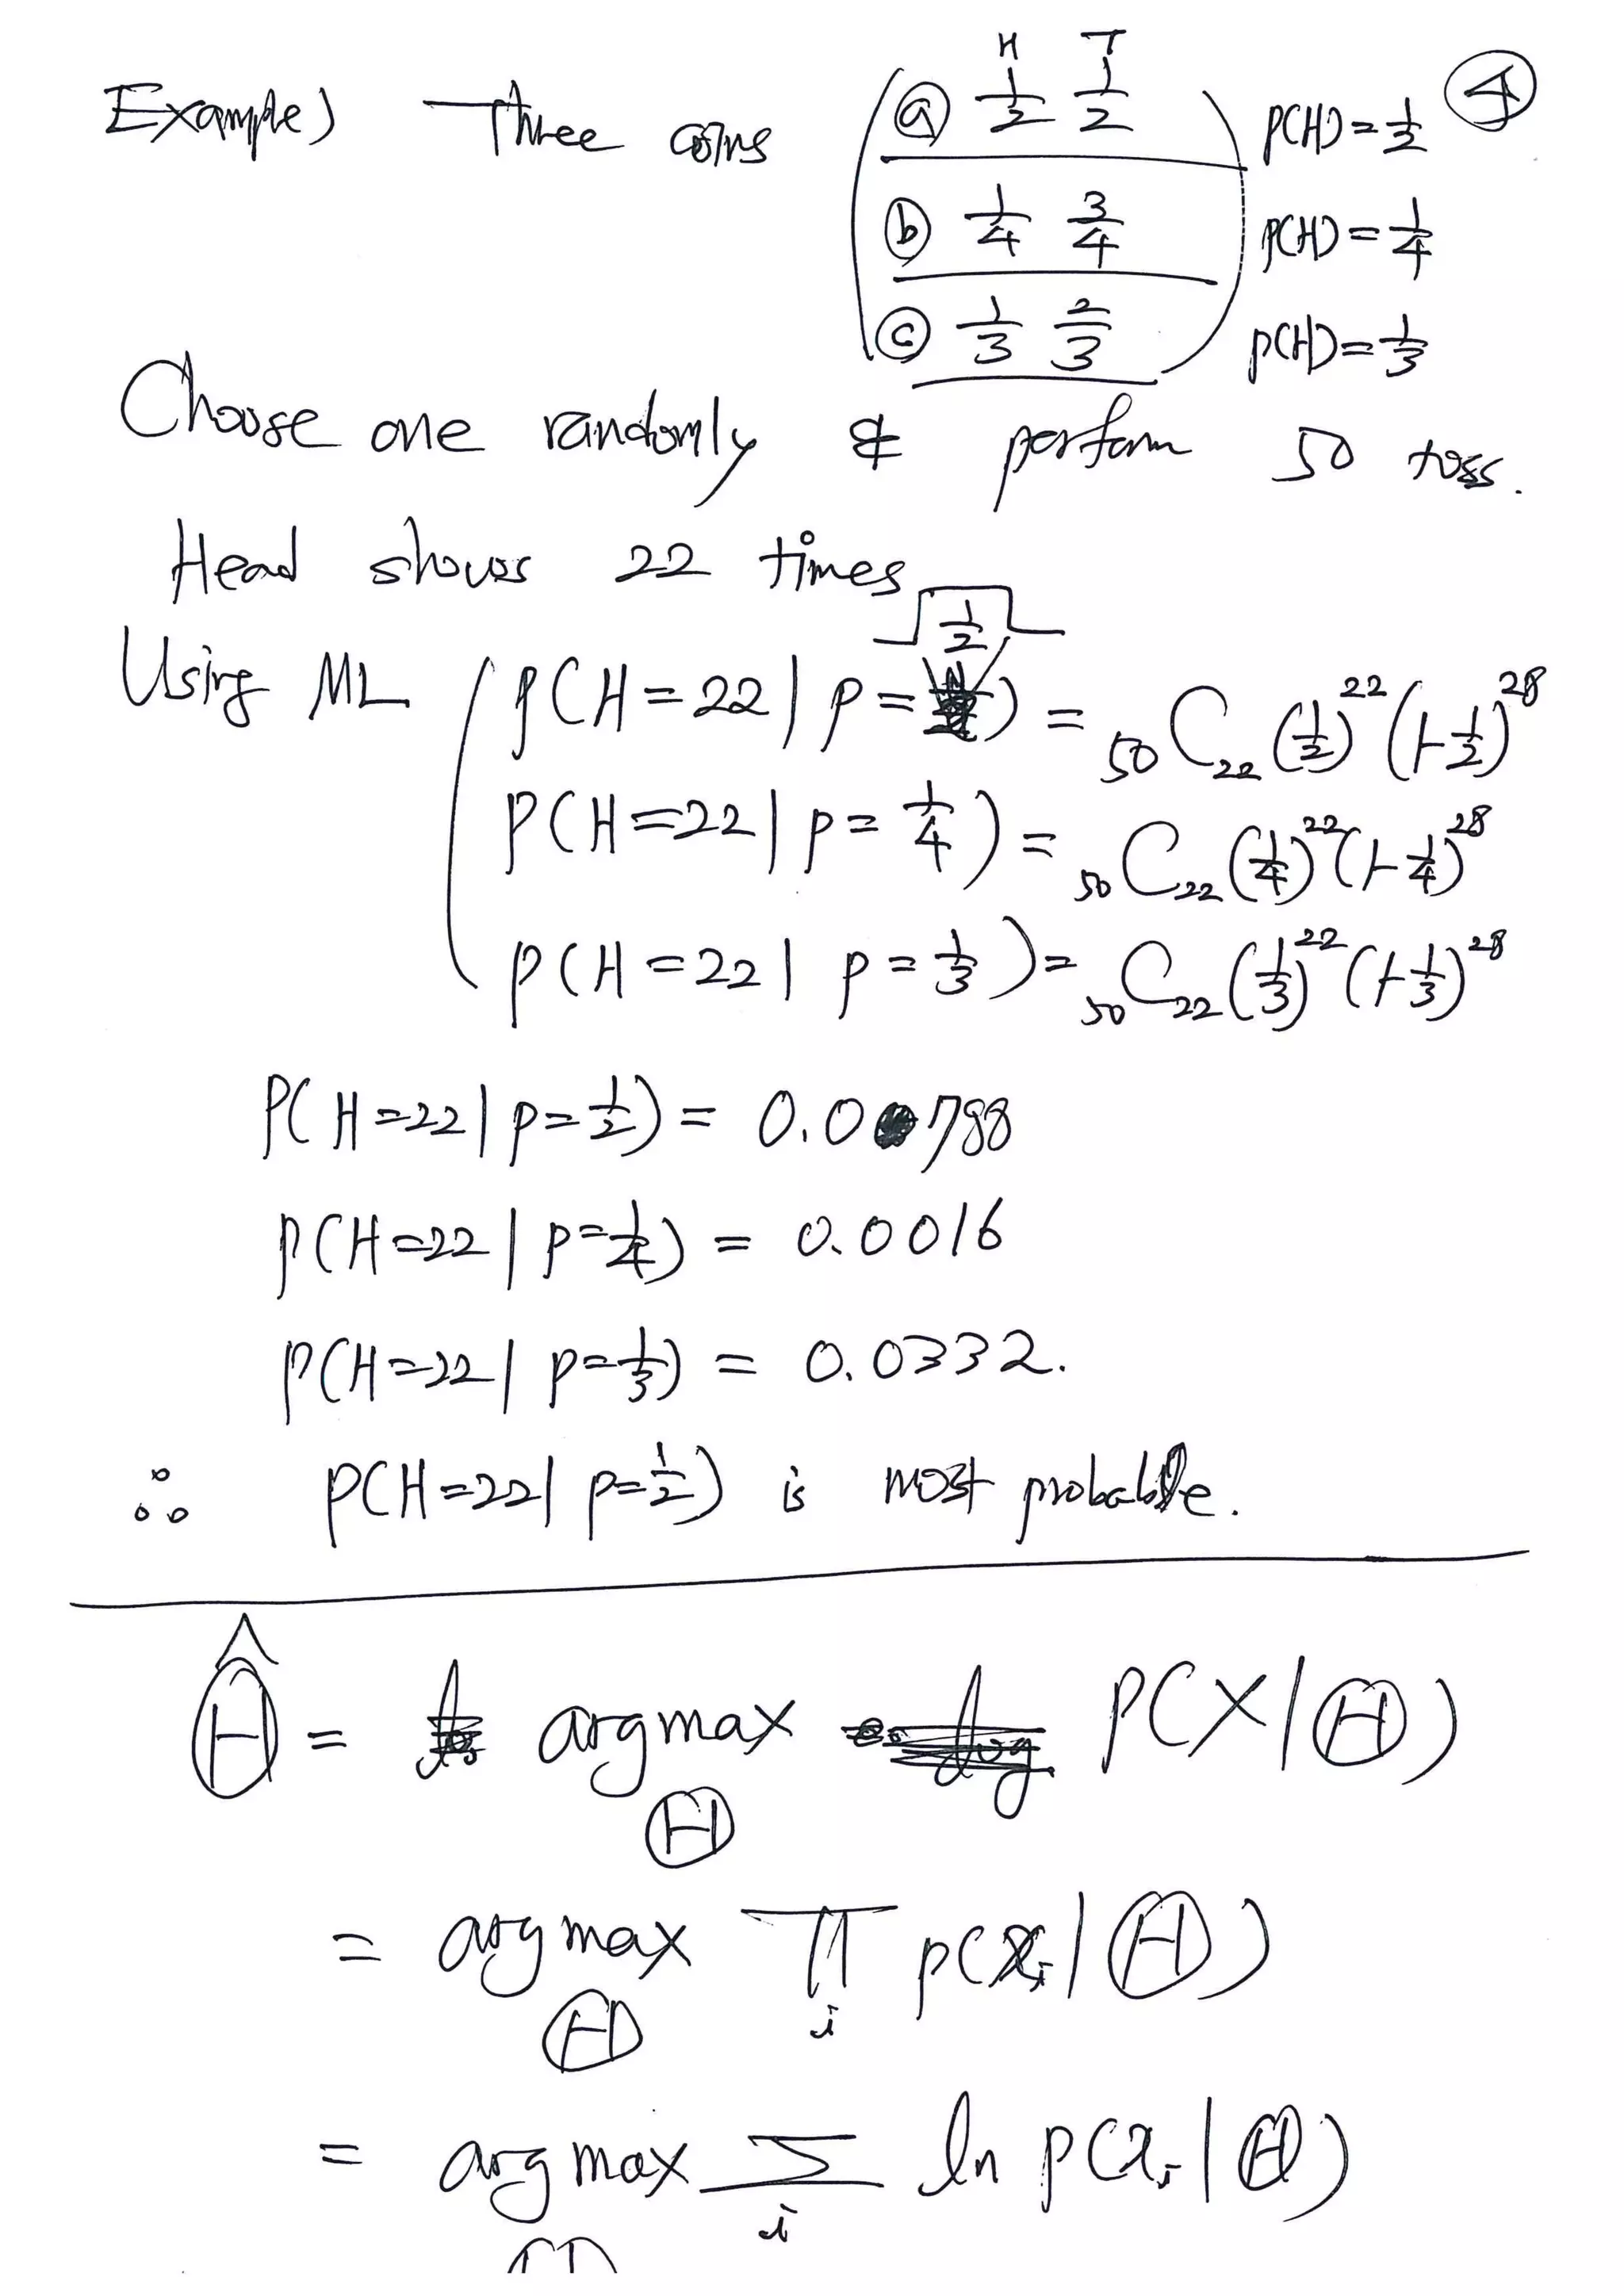 ④
Example) Three coins
H T
ⓐ 1/2 1/2 P(H)=1/2
ⓑ 1/4 3/4 P(H)=1/4
ⓒ 1/3 2/3 P(H)=1/3
Choose one randomly & perform 50 toss.
Head shows 22 times
Using ML P(H=22 | P=1/2) = ₅₀C₂₂ (1/2)²² (1-1/2)²⁸
P(H=22 | P=1/4) = ₅₀C₂₂ (1/4)²² (1-1/4)²⁸
P(H=22 | P=1/3) = ₅₀C₂₂ (1/3)²² (1-1/3)²⁸
P(H=22 | P=1/2) = 0.0788
P(H=22 | P=1/4) = 0.0016
P(H=22 | P=1/3) = 0.0332.
∴ P(H=22 | P=1/2) is most probable.
Θ̂ = argmax P(X|Θ)
Θ
= argmax ∏ P(xᵢ|Θ)
Θ i
= argmax ∑ ln P(xᵢ|Θ)
Θ i